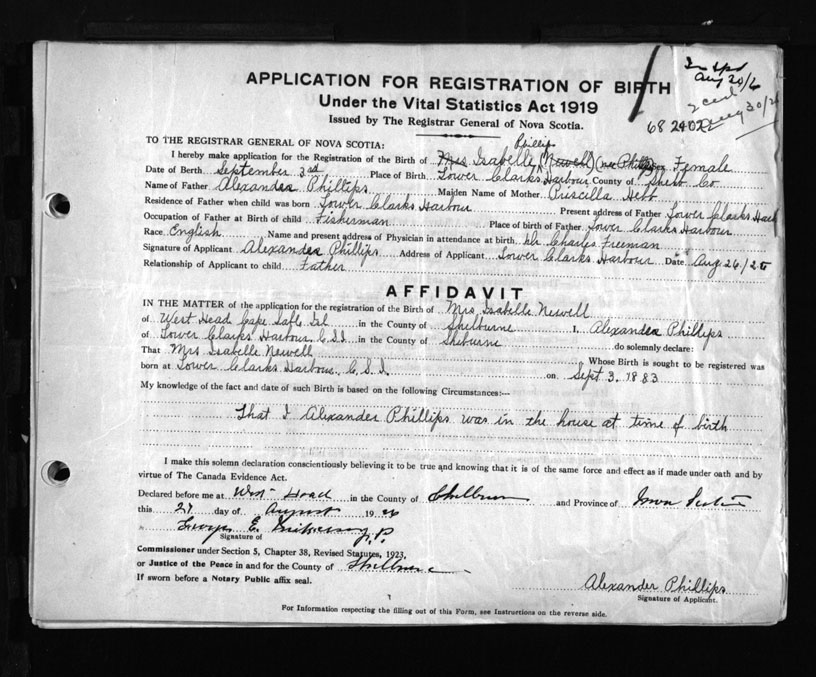 Aug 30/26
APPLICATION FOR REGISTRATION OF BIRTH
Under the Vital Statistics Act 1919
Issued by The Registrar General of Nova Scotia.
TO THE REGISTRAR GENERAL OF NOVA SCOTIA:
Phillips
I hereby make application for the Registration of the Birth of Mrs Isabelle (Newell) (nee Phillips) Sex Female
Date of Birth September 3rd Place of Birth Lower Clarks Harbour County of Shelb Co
Name of Father Alexander Phillips Maiden Name of Mother Priscilla Hebb
Residence of Father when child was born Lower Clarks Harbour Present address of Father Lower Clarks Harb
Occupation of Father at Birth of child Fisherman Place of birth of Father Lower Clarks Harbour
Race English Name and present address of Physician in attendance at birth, Dr Charles Freeman
Signature of Applicant Alexander Phillips Address of Applicant Lower Clarks Harbour Date Aug 26/26
Relationship of Applicant to child Father
AFFIDAVIT
IN THE MATTER of the application for the registration of the Birth of Mrs Isabelle Newell
of West Head Cape Sable Isl in the County of Shelburne I, Alexander Phillips
of Lower Clarks Harbour C.S.I. in the County of Shelburne do solemnly declare:
That Mrs Isabelle Newell Whose Birth is sought to be registered was
born at Lower Clarks Harbour, C.S.I. on Sept 3. 1883
My knowledge of the fact and date of such Birth is based on the following Circumstances:—
That I Alexander Phillips was in the house at time of birth
I make this solemn declaration conscientiously believing it to be true and knowing that it is of the same force and effect as if made under oath and by
virtue of The Canada Evidence Act.
Declared before me at West Head in the County of Shelburne and Province of Nova Scotia
this 27 day of August 1926
George E. J.P.
Signature of
Commissioner under Section 5, Chapter 38, Revised Statutes, 1923,
or Justice of the Peace in and for the County of Shelburne
If sworn before a Notary Public affix seal.
Alexander Phillips
Signature of Applicant.
For Information respecting the filling out of this Form, see Instructions on the reverse side.